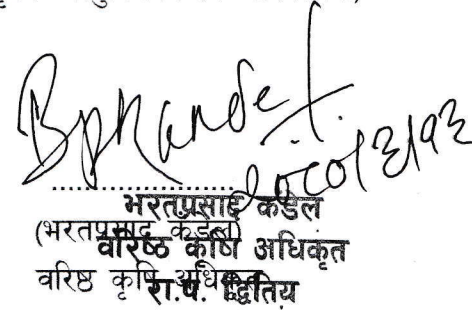 Bpkandel
२०८०।३।१३
भरतप्रसाद कंडेल
(भरतप्रसाद कंडेल)
वरिष्ठ कृषि अधिकृत
वरिष्ठ कृषि अधिकृत
रा.प. द्वितिय